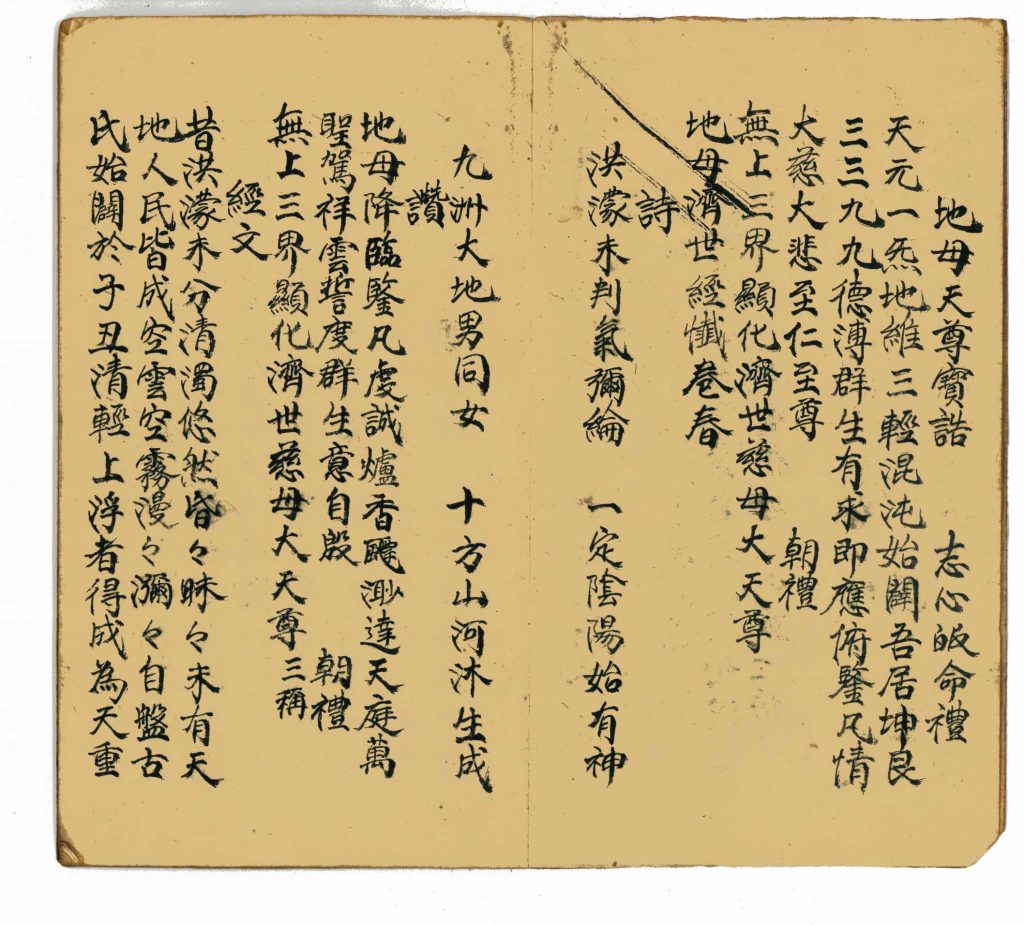 地母天尊寶誥　志心皈命禮
天元一炁地維三輕混沌始闢吾居坤艮
三三九九德溥群生有求即應俯鑒凡情
大慈大悲至仁至尊　朝禮
無上三界顯化濟世慈母大天尊
地母濟世經懺卷春
詩
洪濛未判氣彌綸　一定陰陽始有神
九洲大地男同女　十方山河沐生成
讚
地母降臨鑒凡虔誠爐香飄渺達天庭萬
聖駕祥雲誓度群生意自殷　朝禮
無上三界顯化濟世慈母大天尊三稱
經文
昔洪濛未分清濁悠然昏々昧々未有天
地人民皆成空雲空霧漫々瀰々自盤古
氏始闢於子丑清輕上浮者得成為天重